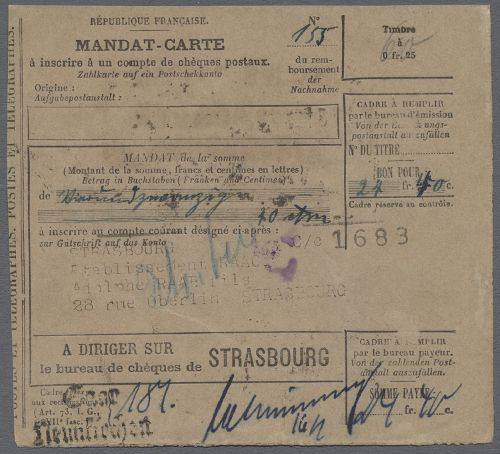 RÉPUBLIQUE FRANÇAISE.
MANDAT-CARTE
à inscrire à un compte de chèques postaux.
Zahlkarte auf ein Postscheckkonto
Origine :
Aufgabepostanstalt :
N° 155
du remboursement
der Nachnahme
Timbre
à
0 fr. 25
CADRE A REMPLIR
par le bureau d'émission
Von der
postanstalt auszufüllen
N° DU TITRE
BON POUR
24 fr. 40 c.
Cadre réservé au contrôle.
MANDAT de la somme
(Montant de la somme, francs et centimes en lettres)
Betrag in Buchstaben (Franken und Centimes)
de Vierundzwanzig
40 ctm
à inscrire au compte courant désigné ci-après :
zur Gutschrift auf das Konto
C/C 1683
STRASBOURG
Etablissement
Adolphe
28 rue Oberlin STRASBOURG
A DIRIGER SUR
le bureau de chèques de STRASBOURG
CADRE A REMPLIR
par le bureau payeur.
Von der zahlenden Postanstalt
auszufüllen.
SOMME PAYÉE
24 fr. 40 c.
Cadre
(Art. 73, I. G.,
fasc.)
Saar
Neunkirchen
187.
POSTES ET TÉLÉGRAPHES. POSTES ET TÉLÉGRAPHES.